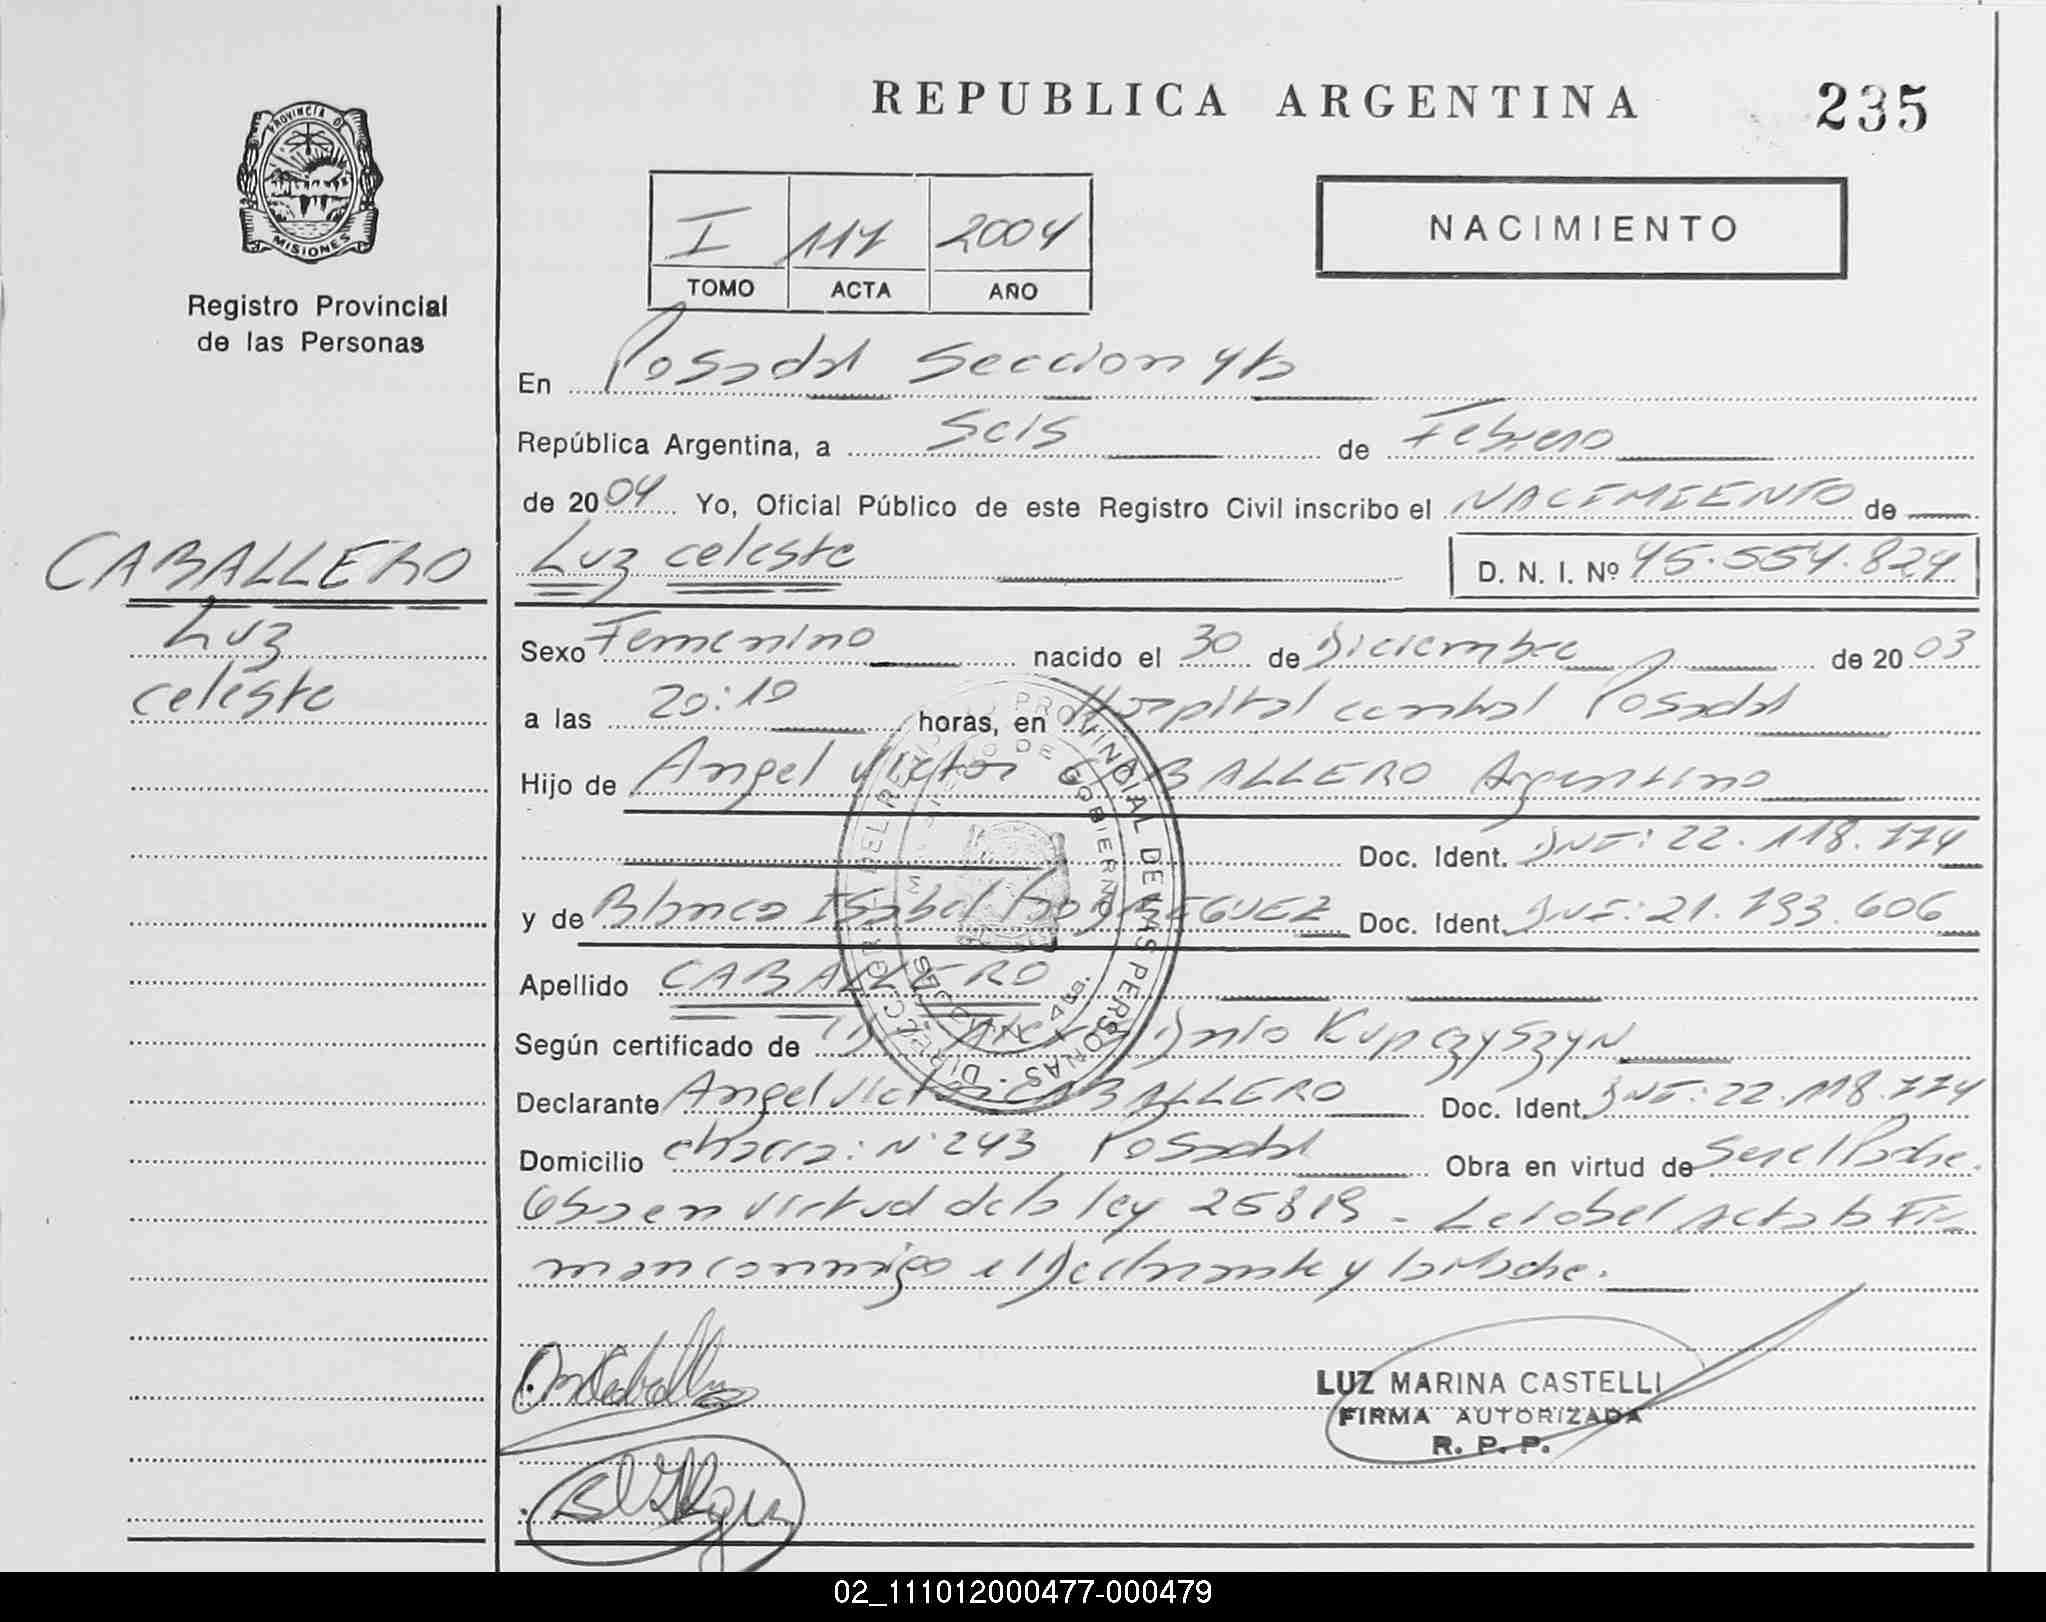 REPUBLICA ARGENTINA
235
PROVINCIA DE
MISIONES
Registro Provincial
de las Personas
I 117 2004
TOMO ACTA AÑO
NACIMIENTO
En Posadas Seccion 4ta
República Argentina, a Seis de Febrero
de 2004 Yo, Oficial Público de este Registro Civil inscribo el NACIMIENTO de
CABALLERO
Luz celeste
D. N. I. Nº 45.554.824
Luz
celeste
Sexo Femenino nacido el 30 de Diciembre de 2003
a las 20:10 horas, en Hospital central Posadas
Hijo de Angel Victor CABALLERO Argentino
Doc. Ident. DNI: 22.118.774
y de Blanca Isabel RODRIGUEZ Doc. Ident. DNI: 21.793.606
Apellido CABALLERO
Según certificado de Kupczyszyn
Declarante Angel Victor CABALLERO Doc. Ident. DNI: 22.118.774
Domicilio chacra: Nº 243 Posadas Obra en virtud de Ser el Padre.
Obra en virtud de la ley 25819 - Leida el Acta la Fir
man conmigo el Declarante y la Madre.
LUZ MARINA CASTELLI
FIRMA AUTORIZADA
R. P. P.
02_111012000477-000479